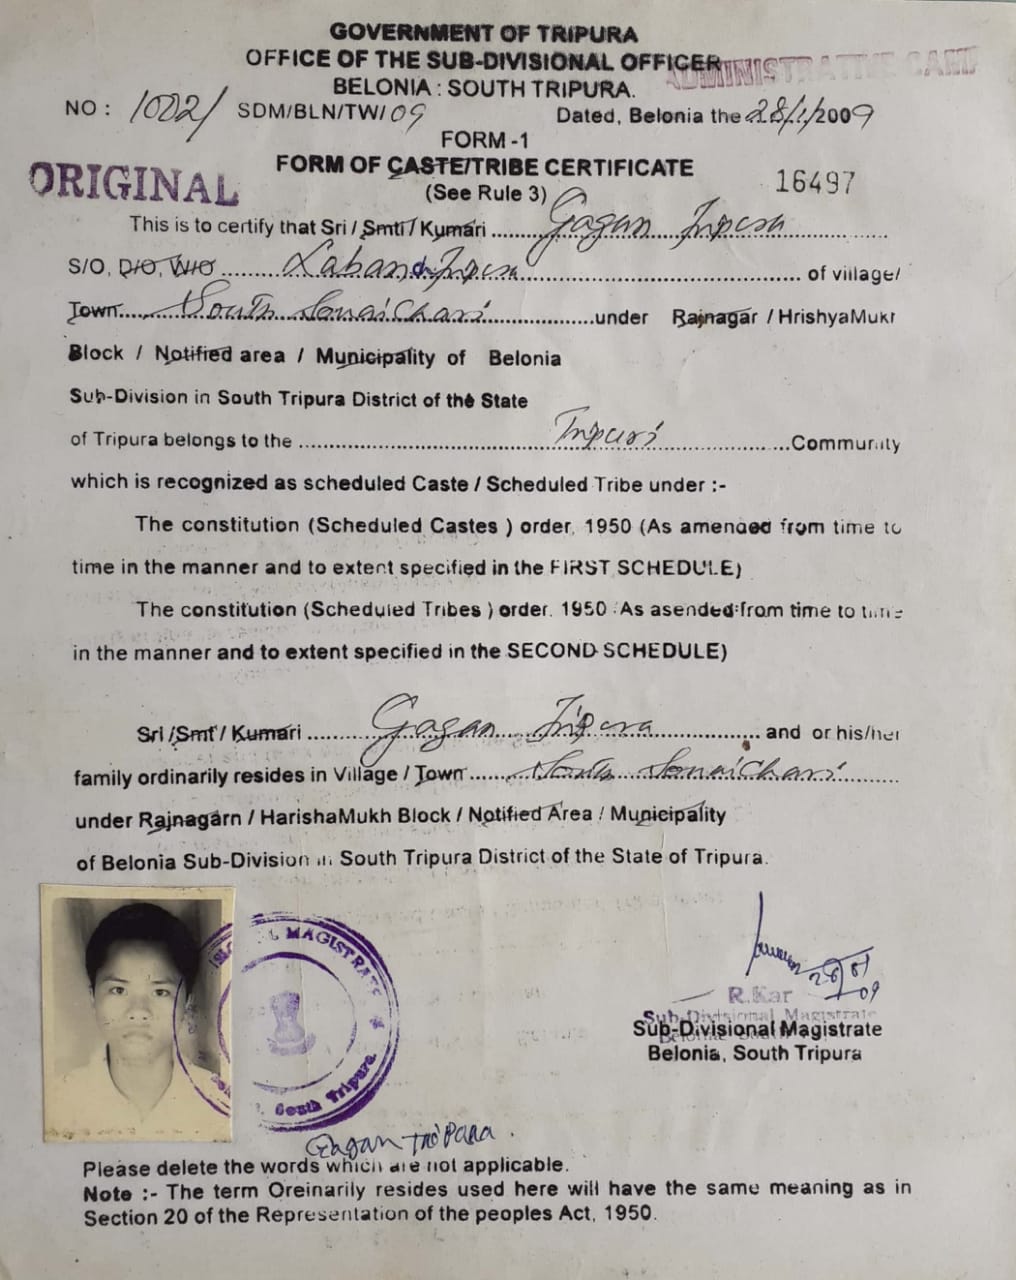 GOVERNMENT OF TRIPURA
OFFICE OF THE SUB-DIVISIONAL OFFICER
ADMINISTRATIVE CAMP
BELONIA : SOUTH TRIPURA.
NO : 1002/ SDM/BLN/TW/09 Dated, Belonia the 28/1/2009
FORM -1
FORM OF CASTE/TRIBE CERTIFICATE
ORIGINAL (See Rule 3) 16497
This is to certify that Sri / Smti / Kumari Gagan Tripura
S/O, D/O, W/O Tripura of village/
Town South Sonaichari under Rajnagar / HrishyaMukh
Block / Notified area / Municipality of Belonia
Sub-Division in South Tripura District of the State
of Tripura belongs to the Tripuri Community
which is recognized as scheduled Caste / Scheduled Tribe under :-
The constitution (Scheduled Castes ) order, 1950 (As amended from time to
time in the manner and to extent specified in the FIRST SCHEDULE)
The constitution (Scheduled Tribes ) order. 1950 As asended from time to time
in the manner and to extent specified in the SECOND SCHEDULE)
Sri /Smt / Kumari Gagan Tripura and or his/her
family ordinarily resides in Village / Town South Sonaichari
under Rajnagarn / HarishaMukh Block / Notified Area / Municipality
of Belonia Sub-Division in South Tripura District of the State of Tripura.
MAGISTRATE
South Tripura
28/01/09
R.Kar
Sub-Divisional Magistrate
Sub-Divisional Magistrate
Belonia, South Tripura
Gagan Tripura.
Please delete the words which are not applicable.
Note :- The term Oreinarily resides used here will have the same meaning as in
Section 20 of the Representation of the peoples Act, 1950.